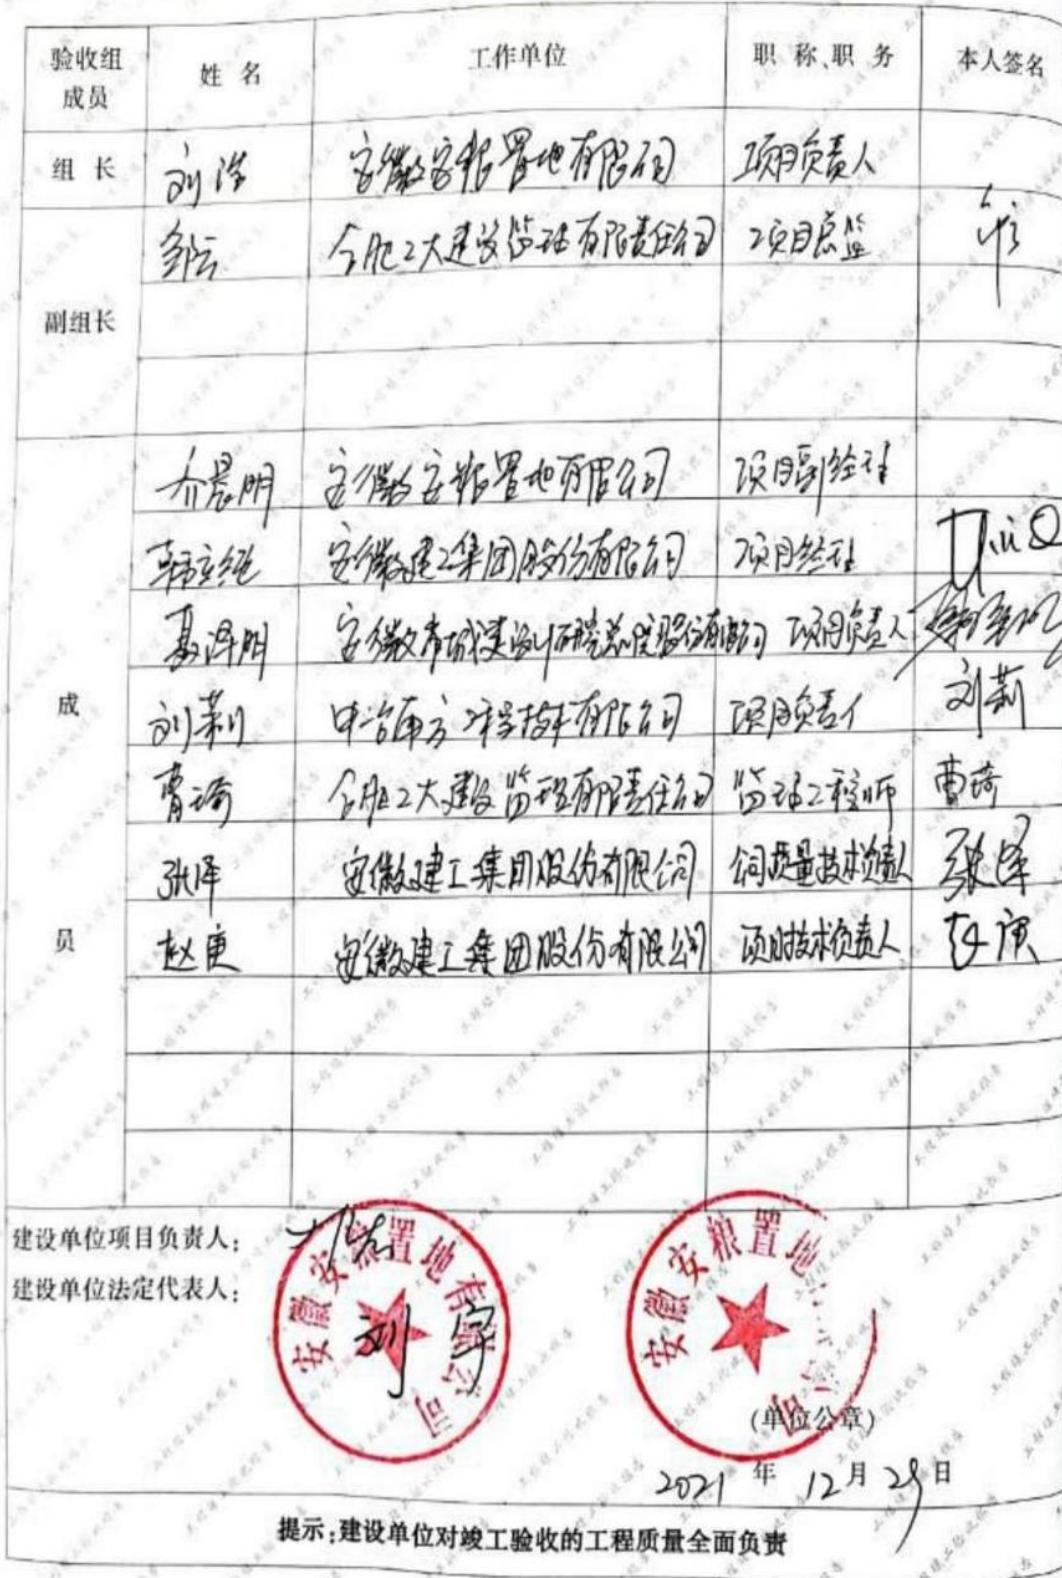 验收组成员 姓名 工作单位 职称、职务 本人签名
组长 刘浩 安徽安粮置地有限公司 项目负责人
合肥工大建设监理有限责任公司 项目总监
副组长
乔晨明 安徽安粮置地有限公司 项目副经理
安徽建工集团股份有限公司 项目经理
聂泽明 项目负责人
刘莉 中冶南方工程技术有限公司 项目负责人 刘莉
曹琦 合肥工大建设监理有限责任公司 监理工程师 曹琦
张泽 安徽建工集团股份有限公司 公司质量技术负责人 张泽
赵庚 安徽建工集团股份有限公司 项目技术负责人 赵庚
成员
建设单位项目负责人:
建设单位法定代表人: 刘宇
安徽安粮置地有限公司
安徽安粮置地 公司
(单位公章)
2021年12月29日
提示:建设单位对竣工验收的工程质量全面负责
工程竣工验收报告